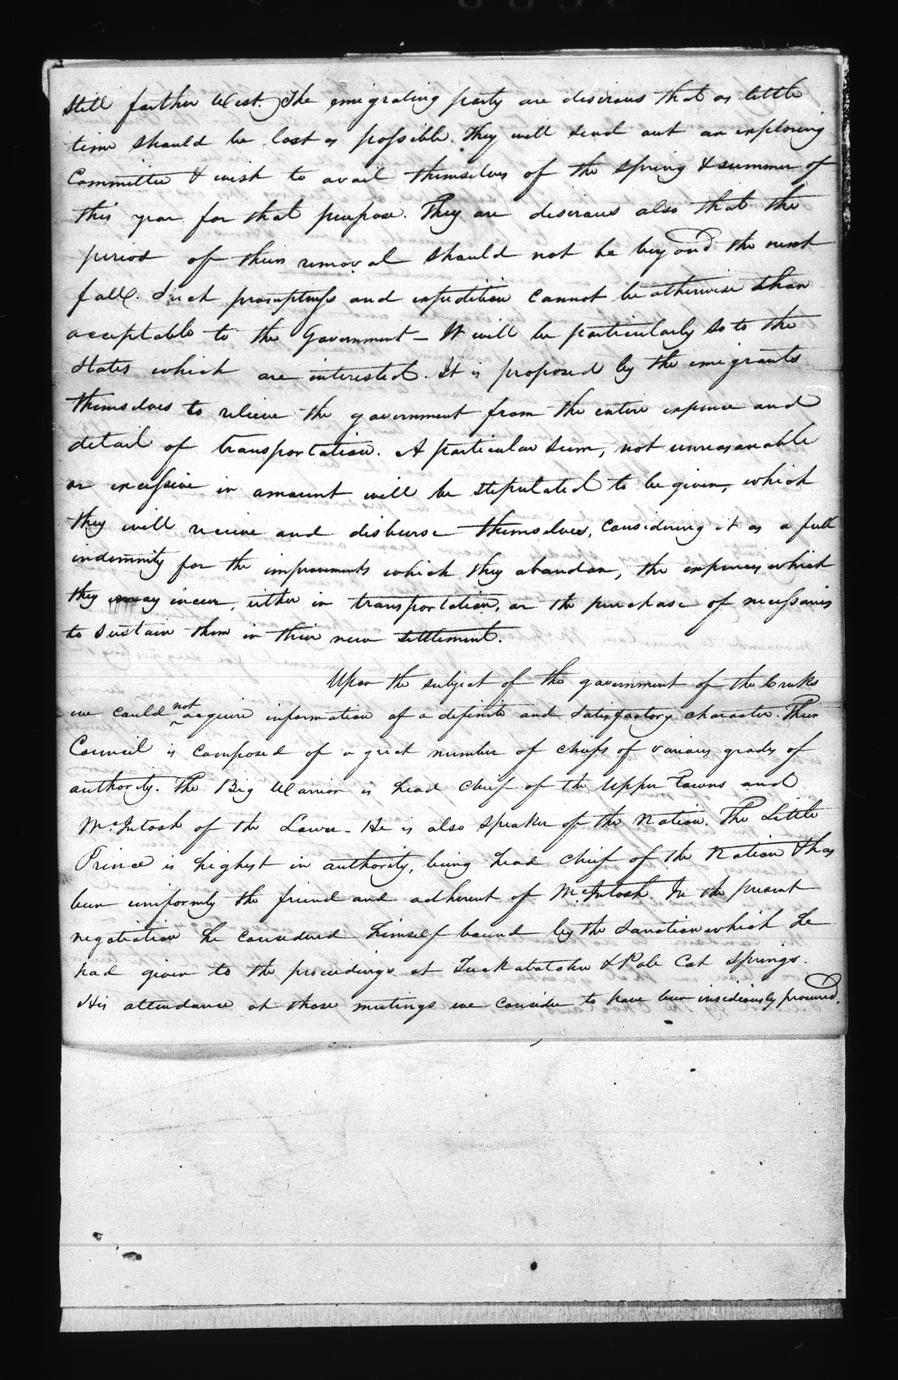 still farther West. The emigrating party are desirous that as little
time should be lost as possible. They will send out an exploring
Committee & wish to avail themselves of the spring & summer of
this year for that purpose. They are desirous also that the
period of their removal should not be beyond the next
fall. Such promptness and expedition cannot be otherwise than
acceptable to the Government – It will be particularly so to the
States which are interested. It is proposed by the emigrants
themselves to relieve the government from the entire expense and
detail of transportation. A particular sum, not unreasonable
or excessive in amount will be stipulated to be given, which
they will receive and disburse themselves, considering it as a full
indemnity for the improvements which they abandon, the expenses which
they may incur, either in transportation, or the purchase of necessaries
to sustain them in their new settlement.
Upon the subject of the government of the Creeks
we could not acquire information of a definite and satisfactory character. Their
Council is composed of a great number of chiefs of various grades of
authority. The Big Warrior is head chief of the Upper Towns and
McIntosh of the Lower – He is also speaker of the Nation. The Little
Prince is highest in authority, being head chief of the Nation & has
been uniformly the friend and adherent of McIntosh. In the present
negotiation he considered himself bound by the sanction which he
had given to the proceedings at Tuckabatchee & Pole Cat Springs.
His attendance at those meetings we consider to have been insidiously procured.